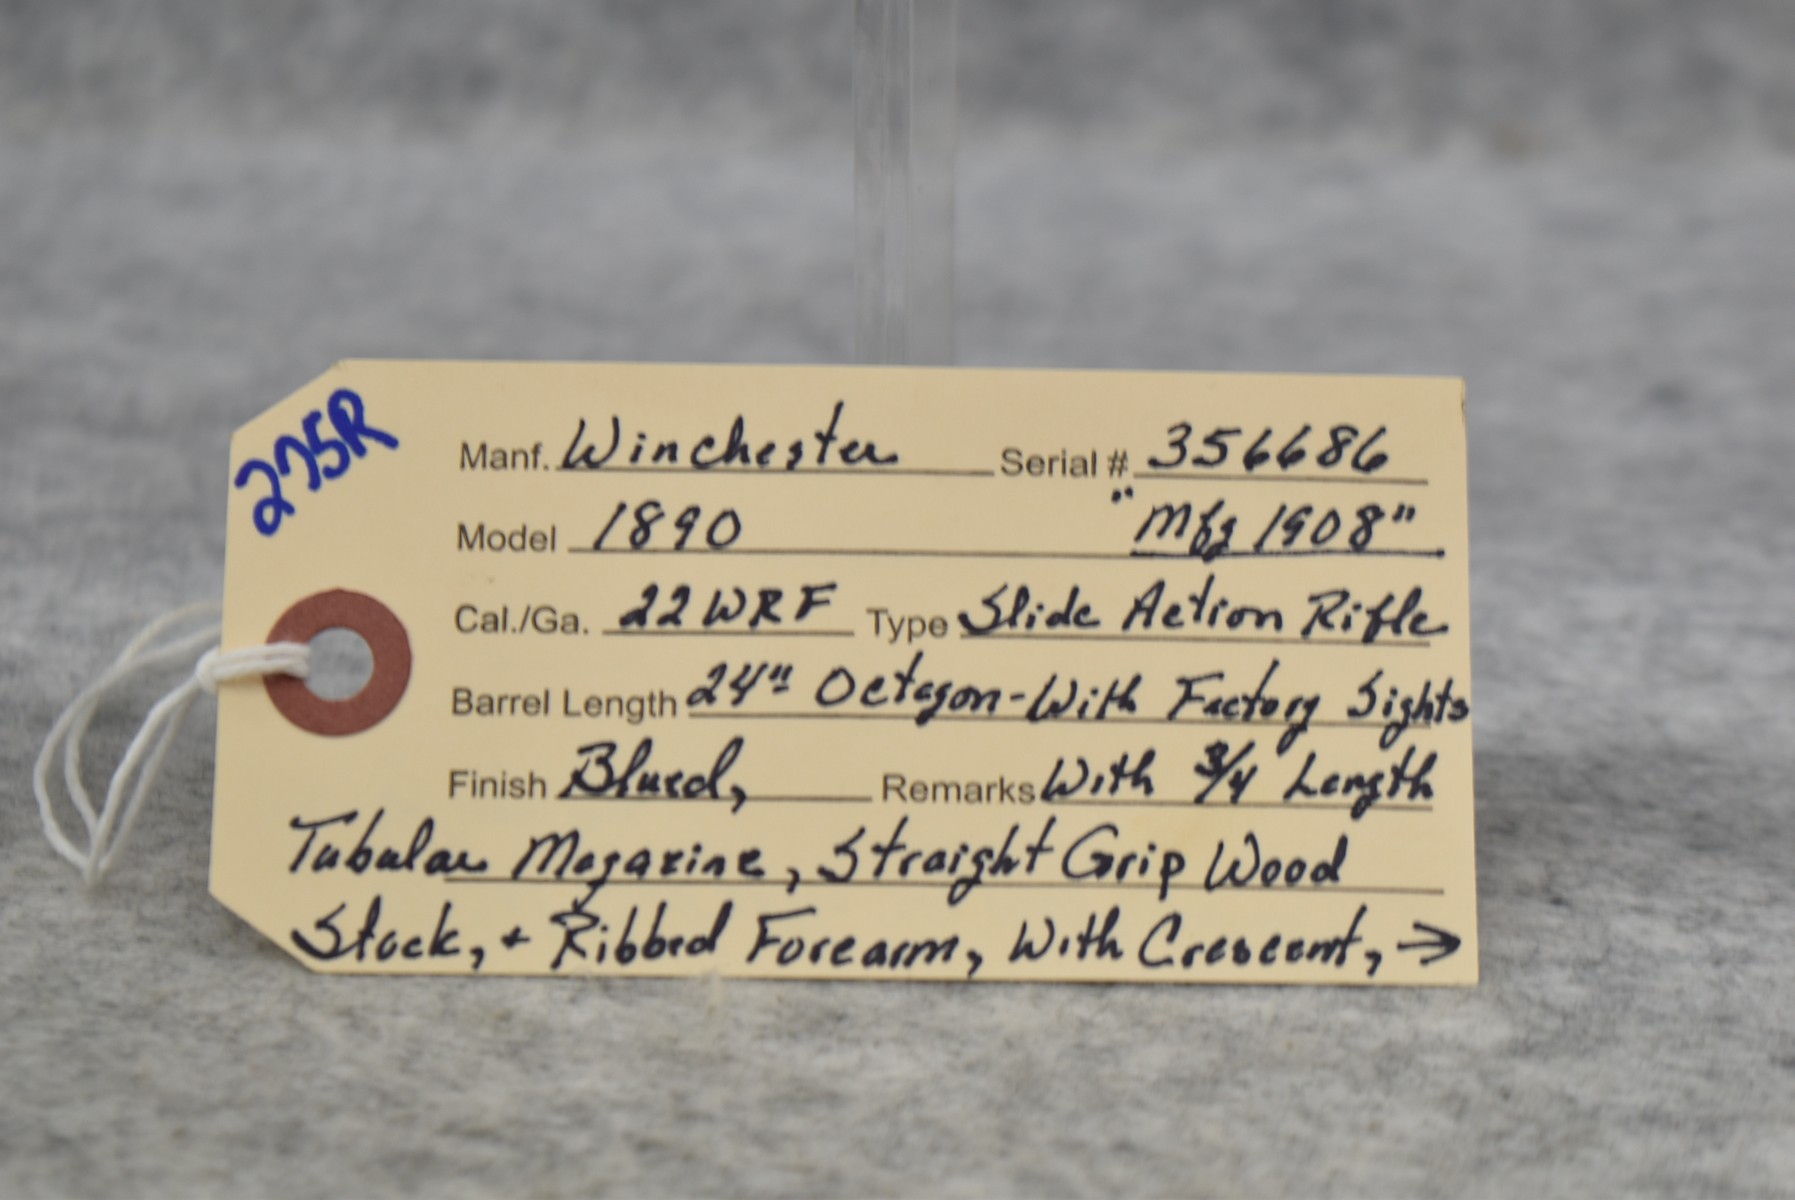 275R
Manf. Winchester Serial # 356686
Model 1890 "Mfg 1908"
Cal./Ga. 22 WRF Type Slide Action Rifle
Barrel Length 24" Octagon - With Factory Sights
Finish Blued, Remarks With 3/4 Length
Tubular Magazine, Straight Grip Wood
Stock, + Ribbed Forearm, With Crescent, →